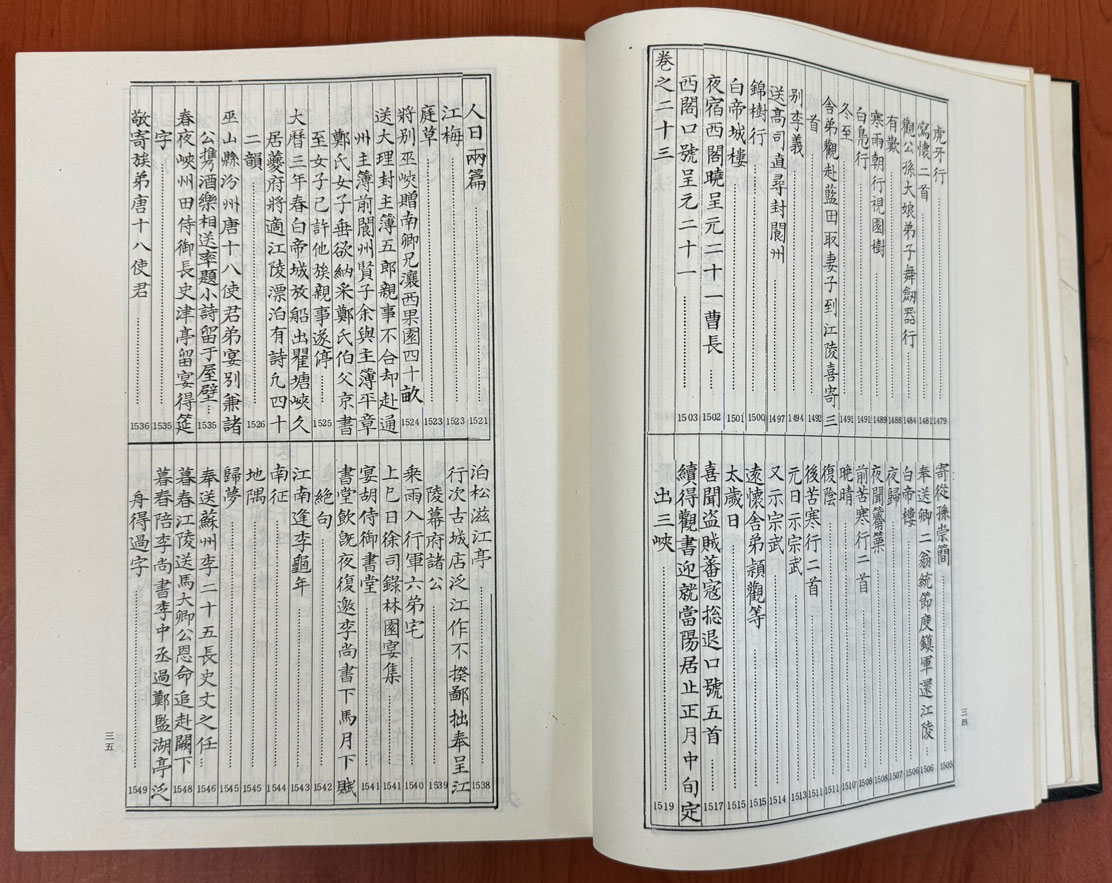 虎牙行 1479
寫懷二首 1481
觀公孫大娘弟子舞劔器行 1484
有歎 1488
寒雨朝行視園樹 1489
白鳧行 1491
冬至 1491
舍弟觀赴藍田取妻子到江陵喜寄三
首 1492
別李義 1494
送高司直尋封閬州 1497
錦樹行 1500
白帝城樓 1501
夜宿西閣曉呈元二十一曹長 1502
西閣口號呈元二十一 1503
卷之二十三
寄從孫崇簡 1505
奉送卿二翁統節度鎮軍還江陵 1506
白帝樓 1506
夜歸 1507
夜聞觱篥 1508
前苦寒行二首 1508
晚晴 1510
復陰 1511
後苦寒行二首 1511
元日示宗武 1513
又示宗武 1514
遠懷舍弟穎觀等 1515
太歲日 1515
喜聞盜賊蕃寇捴退口號五首 1517
續得觀書迎就當陽居止正月中旬定
出三峽 1519
三四
人日兩篇 1521
江梅 1523
庭草 1523
將別巫峽贈南卿兄瀼西果園四十畝 1524
送大理封主簿五郎親事不合却赴通
州主簿前閬州賢子余與主簿平章
鄭氏女子垂欲納采鄭氏伯父京書
至女子已許他族親事遂停 1525
大曆三年春白帝城放船出瞿塘峽久
居夔府將適江陵漂泊有詩凡四十
二韻 1526
巫山縣汾州唐十八使君弟宴別兼諸
公攜酒樂相送率題小詩留于屋壁 1535
春夜峽州田侍御長史津亭留宴得筵
字 1535
敬寄族弟唐十八使君 1536
泊松滋江亭 1538
行次古城店泛江作不揆鄙拙奉呈江
陵幕府諸公 1539
乘雨入行軍六弟宅 1540
上巳日徐司錄林園宴集 1541
宴胡侍御書堂 1541
書堂飲既夜復邀李尚書下馬月下賦
絕句 1542
江南逢李龜年 1543
南征 1544
地隅 1545
歸夢 1545
奉送蘇州李二十五長史丈之任 1546
暮春江陵送馬大卿公恩命追赴闕下 1548
暮春陪李尚書李中丞過鄭監湖亭泛
舟得過字 1549
三五